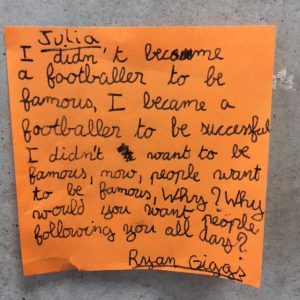 Julia
I didn't become
a footballer to be
famous, I became a
footballer to be successful
I didn't want to be
famous, now, people want
to be famous, Why? Why
would you want people
following you all day?
Ryan Giggs